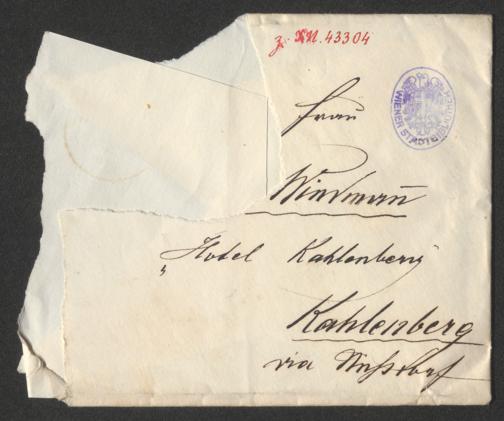 z. XN. 43304
WIENER STADTBIBLIOTHEK
Frau
Wiedmann
"Hotel Kahlenberg"
Kahlenberg
via Nussdorf